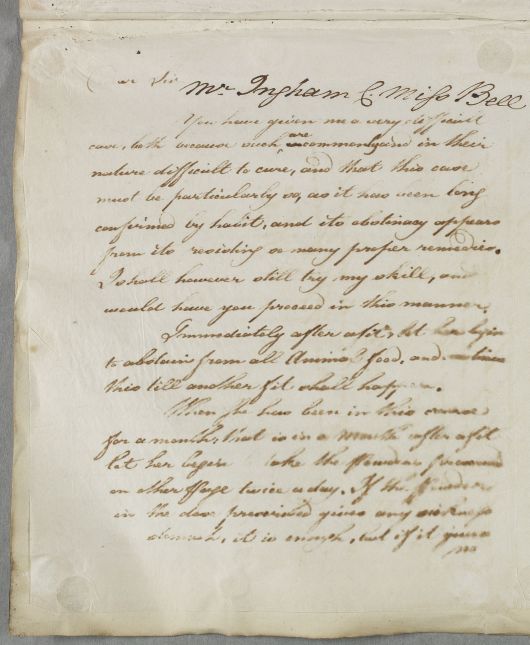 Dear Sir
Mr. Ingham C. Miss Bell
You have given me a very difficult
case, both because such are commonly in their
nature difficult to cure, and that this case
must be particularly so, as it has been long
confirmed by habit, and its obstinacy appears
from its resisting so many proper remedies.
I shall however still try my skill, and
would have you proceed in this manner.
Immediately after a fit, let her begin
to abstain from all Animal food, and continue
this till another fit shall happen.
When she has been in this course
for a month, that is in a Month after a fit
let her begin take the Powders prescribed
on other Page twice a day. If the Powders
in the dose prescribed gives any sickness
stomach, it is enough, but if it gives
no